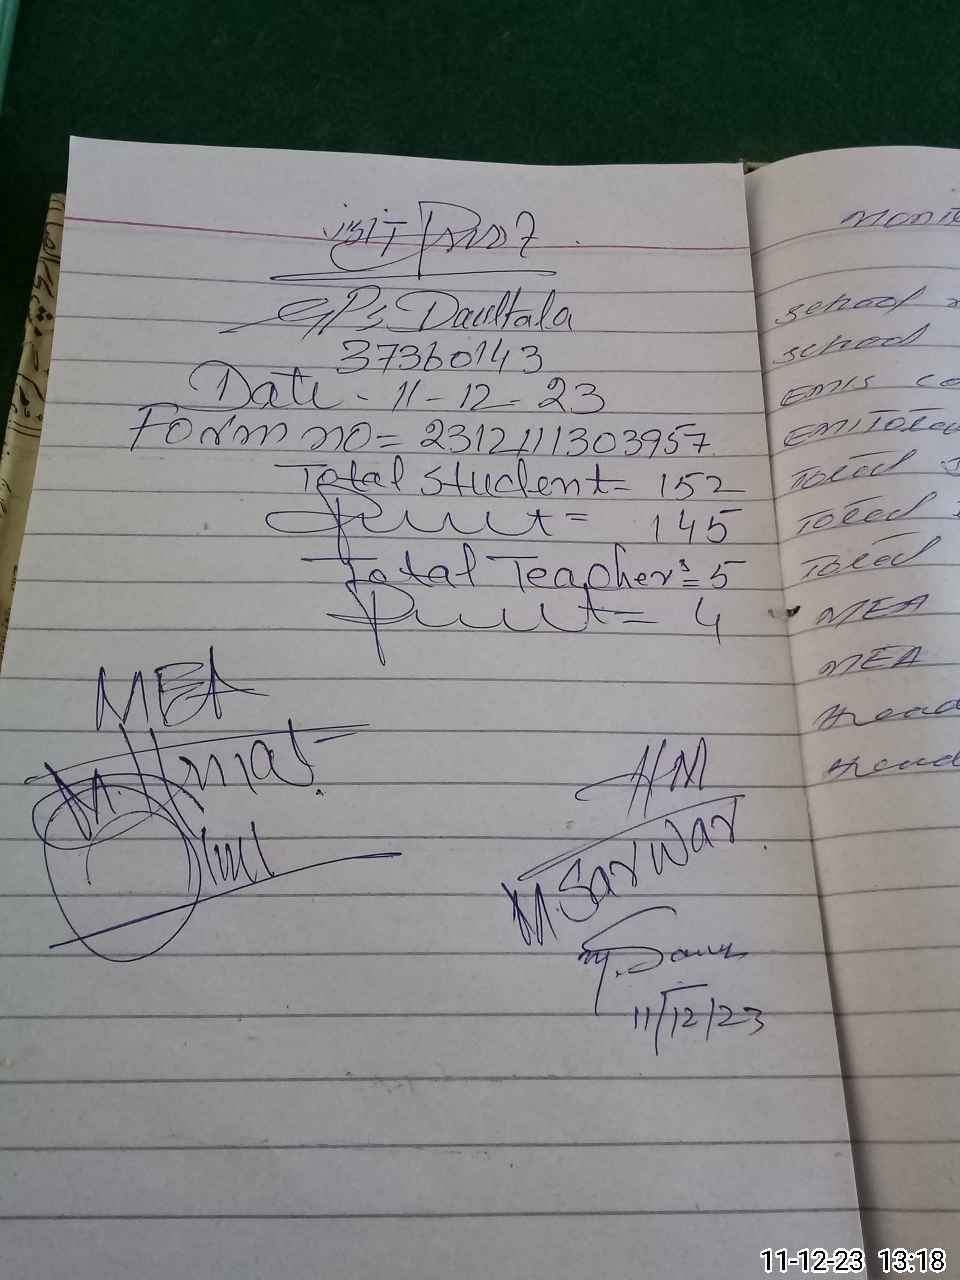 visit
GPS Daultala
37360143
Date - 11-12-23
Form no = 2312111303957
Total student = 152
Present = 145
Total Teacher's = 5
Present = 4
MEA
M.
HM
M. Sarwar
11/12/23
MONI
school
school
EMIS co
EMI
Total
Total
Total
MEA
MEA
Head
Head
11-12-23 13:18